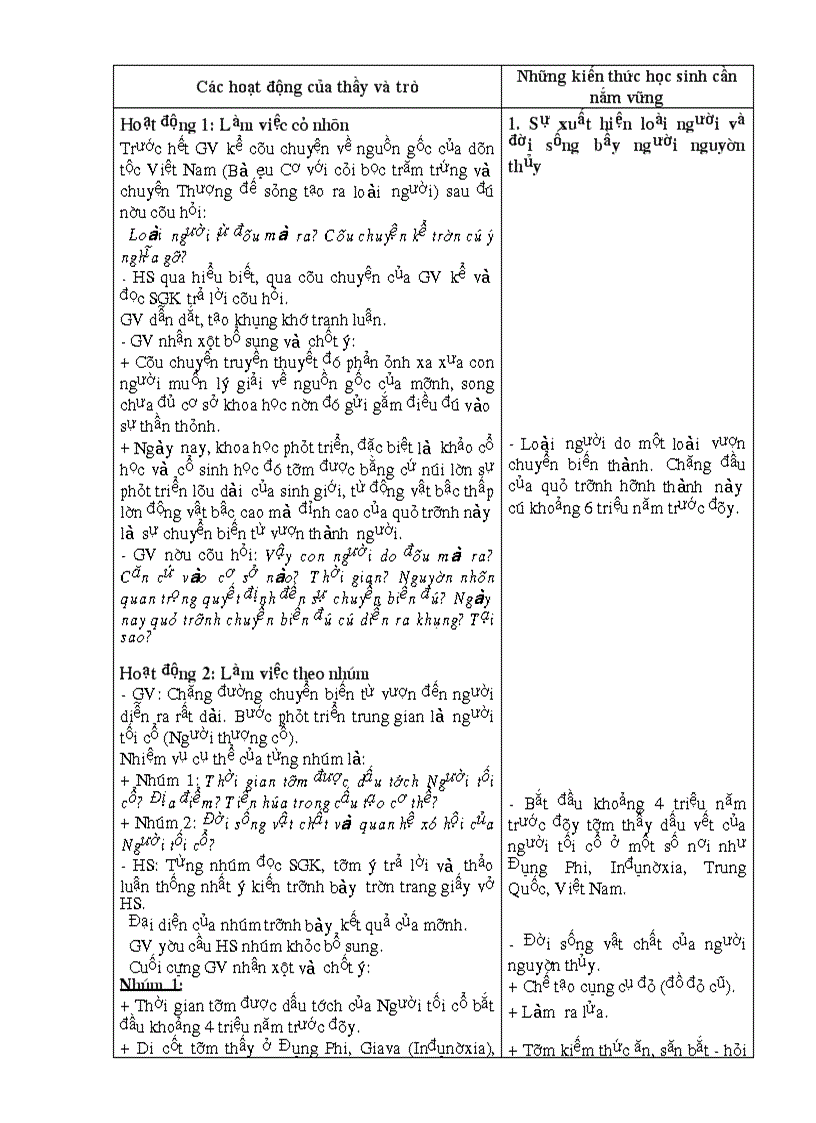 Các hoạt động của thầy và trò
Những kiến thức học sinh cần
nắm vững
Hoạt động 1: Làm việc cỏ nhõn
Trước hết GV kể cõu chuyện về nguồn gốc của dõn
tộc Việt Nam (Bà ẹu Cơ với cỏi bọc trăm trứng và
chuyện Thượng đế sỏng tạo ra loài người) sau đú
nờu cõu hỏi:
Loài người từ đõu mà ra? Cõu chuyện kể trờn cú ý
nghĩa gỡ?
- HS qua hiểu biết, qua cõu chuyện của GV kể và
đọc SGK trả lời cõu hỏi.
GV dẫn dắt, tạo khụng khớ tranh luận.
- GV nhận xột bổ sung và chốt ý:
+ Cõu chuyện truyền thuyết đó phản ỏnh xa xưa con
người muốn lý giải về nguồn gốc của mỡnh, song
chưa đủ cơ sở khoa học nờn đó gửi gắm điều đú vào
sự thần thỏnh.
+ Ngày nay, khoa học phỏt triển, đặc biệt là khảo cổ
học và cổ sinh học đó tỡm được bằng cứ núi lờn sự
phỏt triển lõu dài của sinh giới, từ động vật bậc thấp
lờn động vật bậc cao mà đỉnh cao của quỏ trỡnh này
là sự chuyển biến từ vượn thành người.
- GV nờu cõu hỏi: Vậy con người do đõu mà ra?
Căn cứ vào cơ sở nào? Thời gian? Nguyờn nhõn
quan trọng quyết định đến sự chuyển biến đú? Ngày
nay quỏ trỡnh chuyển biến đú cú diễn ra khụng? Tại
sao?
Hoạt động 2: Làm việc theo nhúm
- GV: Chặng đường chuyển biến từ vượn đến người
diễn ra rất dài. Bước phỏt triển trung gian là người
tối cổ (Người thượng cổ).
Nhiệm vụ cụ thể của từng nhúm là:
+ Nhúm 1: Thời gian tỡm được dấu tớch Người tối
cổ? Địa điểm? Tiến húa trong cấu tạo cơ thể?
+ Nhúm 2: Đời sống vật chất và quan hệ xó hội của
Người tối cổ?
- HS: Từng nhúm đọc SGK, tỡm ý trả lời và thảo
luận thống nhất ý kiến trỡnh bày trờn trang giấy vở
HS.
Đại diện của nhúm trỡnh bày kết quả của mỡnh.
GV yờu cầu HS nhúm khỏc bổ sung.
Cuối cựng GV nhận xột và chốt ý:
Nhúm 1:
+ Thời gian tỡm được dấu tớch của Người tối cổ bắt
đầu khoảng 4 triệu năm trước đõy.
+ Di cốt tỡm thấy ở Đụng Phi, Giava (Inđụnờxia),
1. Sự xuất hiện loài người và
đời sống bầy người nguyờn
thủy
- Loài người do một loài vượn
chuyển biến thành. Chặng đầu
của quỏ trỡnh hỡnh thành này
cú khoảng 6 triệu năm trước đõy.
- Bắt đầu khoảng 4 triệu năm
trước đõy tỡm thấy dấu vết của
người tối cổ ở một số nơi như
Đụng Phi, Inđụnờxia, Trung
Quốc, Việt Nam.
- Đời sống vật chất của người
nguyờn thủy.
+ Chế tạo cụng cụ đỏ (đồ đỏ cũ).
+ Làm ra lửa.
+ Tỡm kiếm thức ăn, săn bắt - hỏi